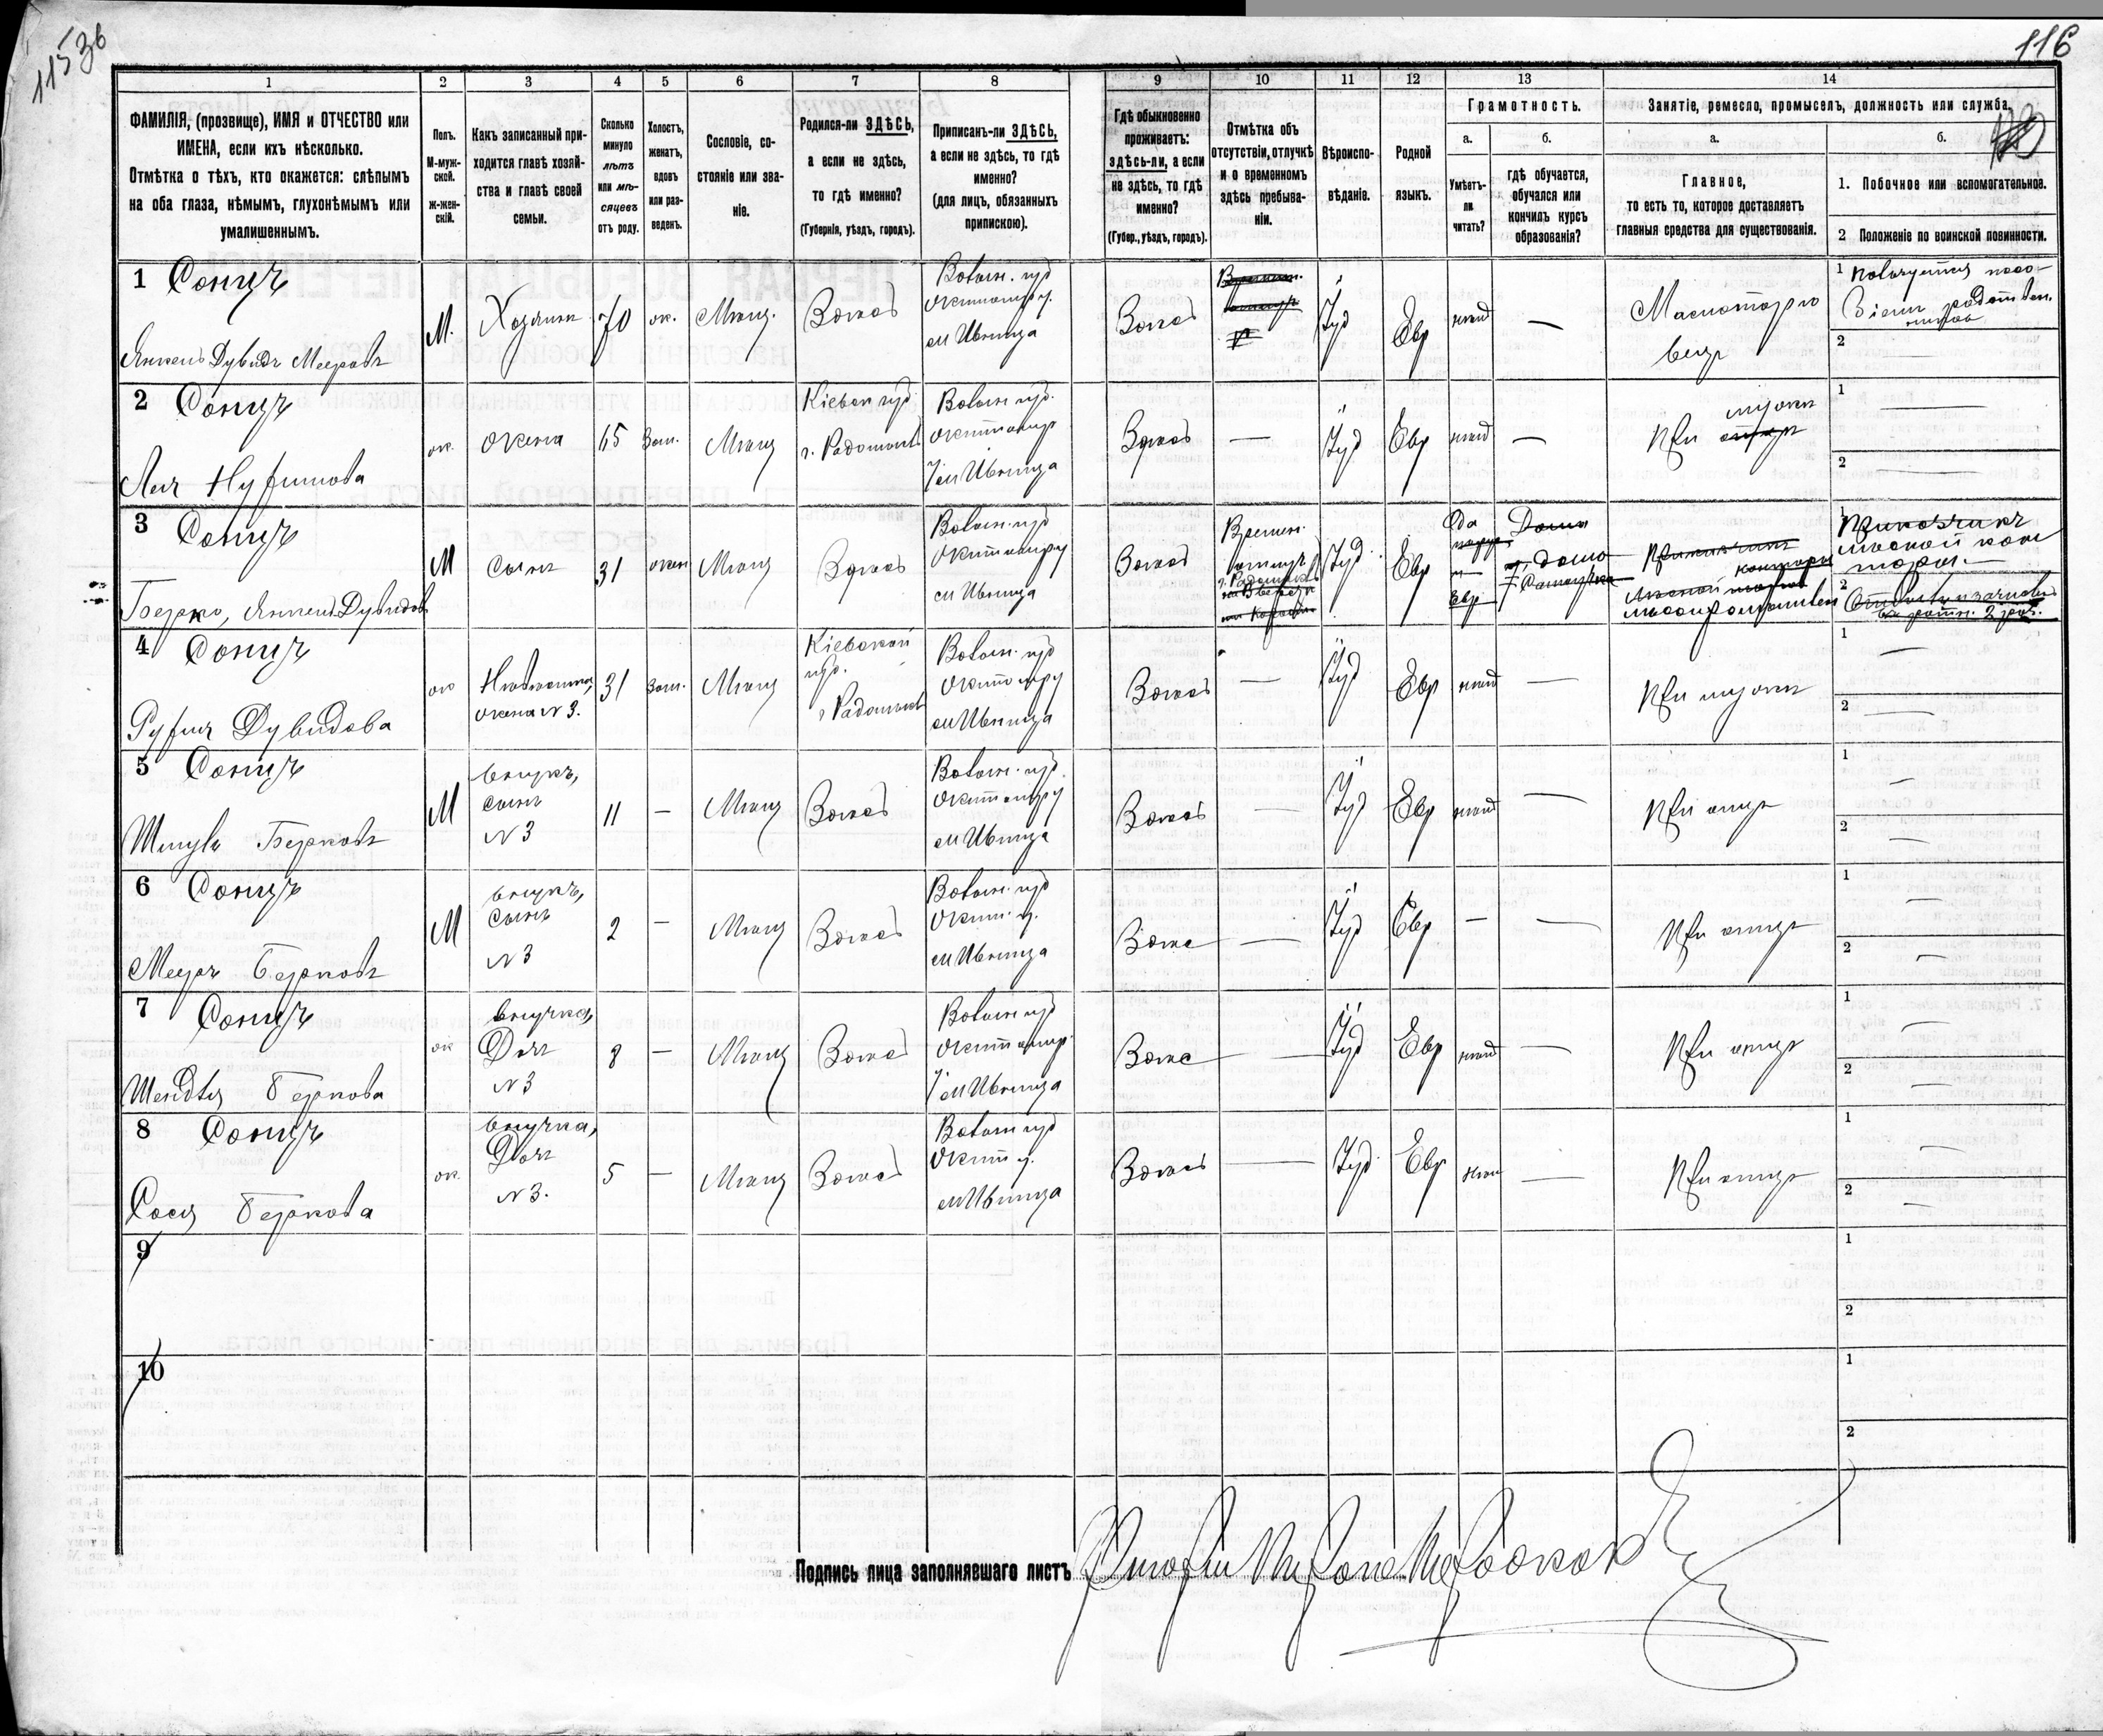 116
1
2
3
4
5
6
7
8
9
10
11
12
13
14
ФАМИЛІЯ, (прозвище), ИМЯ и ОТЧЕСТВО или
ИМЕНА, если ихъ нѣсколько.
Отмѣтка о тѣхъ, кто окажется: слѣпымъ
на оба глаза, нѣмымъ, глухонѣмымъ или
умалишеннымъ.
Полъ.
М-муж-
ской.
Ж-жен-
скій.
Какъ записанный при-
ходится главѣ хозяй-
ства и главѣ своей
семьи.
Сколько
минуло
лѣтъ
или мѣ-
сяцевъ
отъ роду.
Холостъ,
женатъ,
вдовъ
или раз-
веденъ.
Сословіе, со-
стояніе или зва-
ніе.
Родился-ли ЗДѢСЬ,
а если не здѣсь,
то гдѣ именно?
(Губернія, уѣздъ, городъ).
Приписанъ-ли ЗДѢСЬ,
а если не здѣсь, то гдѣ
именно?
(для лицъ, обязанныхъ
припискою).
Гдѣ обыкновенно
проживаетъ:
здѣсь-ли, а если
не здѣсь, то гдѣ
именно?
(Губер., уѣздъ, городъ).
Отмѣтка объ
отсутствіи, отлучкѣ
и о временномъ
здѣсь пребыва-
ніи.
Вѣроиспо-
вѣданіе.
Родной
языкъ.
Грамотность.
а.
Умѣетъ-
ли
читать?
б.
гдѣ обучается,
обучался или
кончилъ курсъ
образованія?
Занятіе, ремесло, промыселъ, должность или служба.
а.
Главное,
то есть то, которое доставляетъ
главныя средства для существованія.
б.
1. Побочное или вспомогательное.
2 Положеніе по воинской повинности.
1 Сонцъ
Янкель Дувидъ Мееровъ
М.
Хозяинъ
70
ж.
Мѣщ.
Здѣсь
Волын. губ
Житомир у.
м Ивница
Здѣсь
Іуд
Евр
нѣтъ
—
1
2
2 Сонцъ
Лея Нуфимова
ж.
жена
65
Зам.
Мѣщ
Кіевск губ
г. Радомысль
Волын губ.
Житомир
у м Ивница
Здѣсь
—
Іуд
Евр
нѣтъ
—
При мужѣ
1
2
3 Сонцъ
Берко, Янкель Дувидовъ
М
сынъ
31
жен
Мѣщ
Здѣсь
Волын. губ
Житомир у
м Ивница
Здѣсь
Времен.
отлуч
Іуд.
Евр
Да
1 Приказчикъ
лѣсной кон
торы.
2
4 Сонцъ
Руфля Дувидова
ж
Невѣстка,
жена N 3.
31
Зам.
Мѣщ
Кіевской
губ.
г Радомысль
Волын. губ
Житомир у
м Ивница
Здѣсь
—
Іуд
Евр
нѣтъ
—
При мужѣ
1
2
5 Сонцъ
Шмуль Берковъ
М
внукъ,
сынъ
N 3
11
—
Мѣщ
Здѣсь
Волын. губ.
Житомир у
м Ивница
Здѣсь
—
Іуд
Евр
нѣтъ
—
При отцѣ
1
2
6 Сонцъ
Мееръ Берковъ
М
внукъ,
сынъ
N 3
2
—
Мѣщ
Здѣсь
Волын. губ
Житом. у.
м Ивница
Здѣс
—
Іуд
Евр
—
—
При отцѣ
1
2
7 Сонцъ
Шендля Беркова
ж
внучка,
Дочь
N 3
8
—
Мѣщ
Здѣсь
Волын губ
Житомир
у м Ивница
Здѣс
—
Іуд
Евр
нѣтъ
—
При отцѣ
1
2
8 Сонцъ
Сося Беркова
ж.
внучка,
Дочь
N 3.
5
—
Мѣщ
Здѣсь
Волын губ
Житом у.
м Ивница
Здѣсь
—
Іуд.
Евр
нѣт
—
При отцѣ
1
2
9
1
2
10
1
2
Подпись лица заполнявшаго листъ